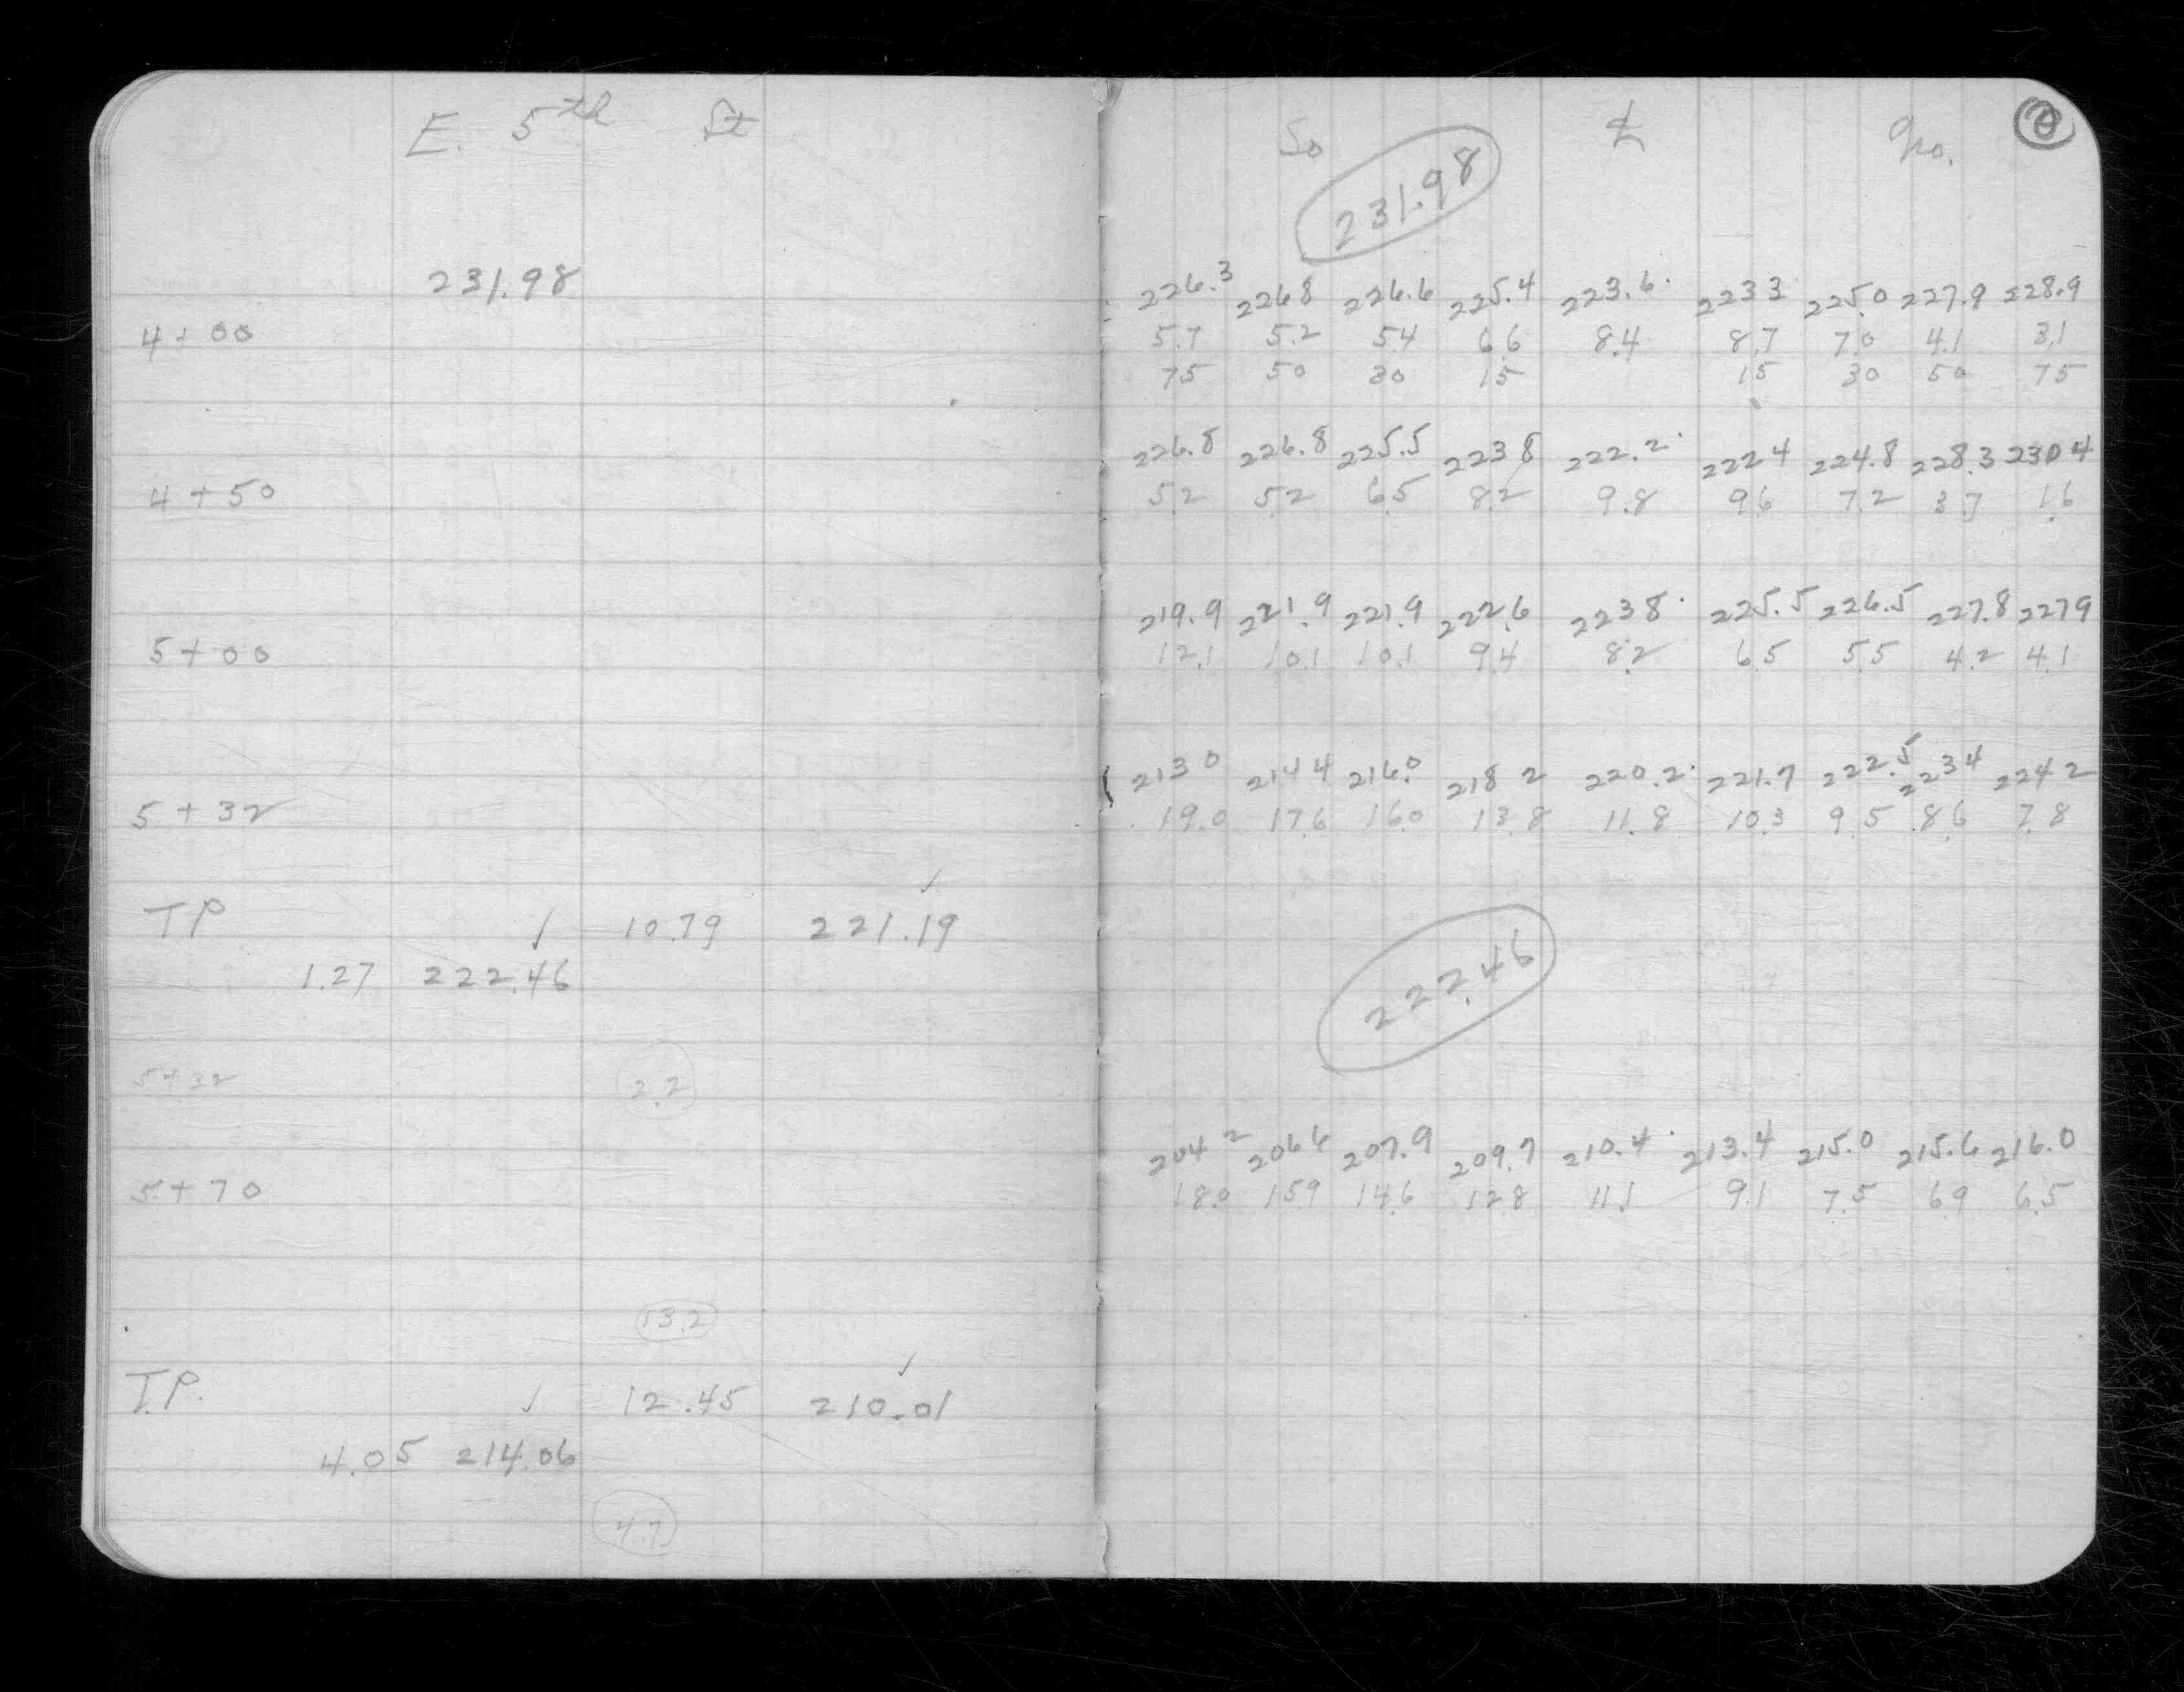 E. 5th St
231.98
4+00
4+50
5+00
5+32
TP ✓ 10.79 221.19 ✓
1.27 222.46
5+32 2.2
5+70
13.2
T.P. ✓ 12.45 210.01 ✓
4.05 214.06
4.7
So ℄ No.
231.98
226.3 226.8 226.6 225.4 223.6 223.3 225.0 227.9 228.9
5.7 5.2 5.4 6.6 8.4 8.7 7.0 4.1 3.1
75 50 30 15 15 30 50 75
226.8 226.8 225.5 223.8 222.2 222.4 224.8 228.3 230.4
5.2 5.2 6.5 8.2 9.8 9.6 7.2 3.7 1.6
219.9 221.9 221.9 222.6 223.8 225.5 226.5 227.8 227.9
12.1 10.1 10.1 9.4 8.2 6.5 5.5 4.2 4.1
213.0 214.4 216.0 218.2 220.2 221.7 222.5 223.4 224.2
19.0 17.6 16.0 13.8 11.8 10.3 9.5 8.6 7.8
222.46
204.2 206.6 207.9 209.7 210.4 213.4 215.0 215.6 216.0
18.0 15.9 14.6 12.8 11.1 9.1 7.5 6.9 6.5